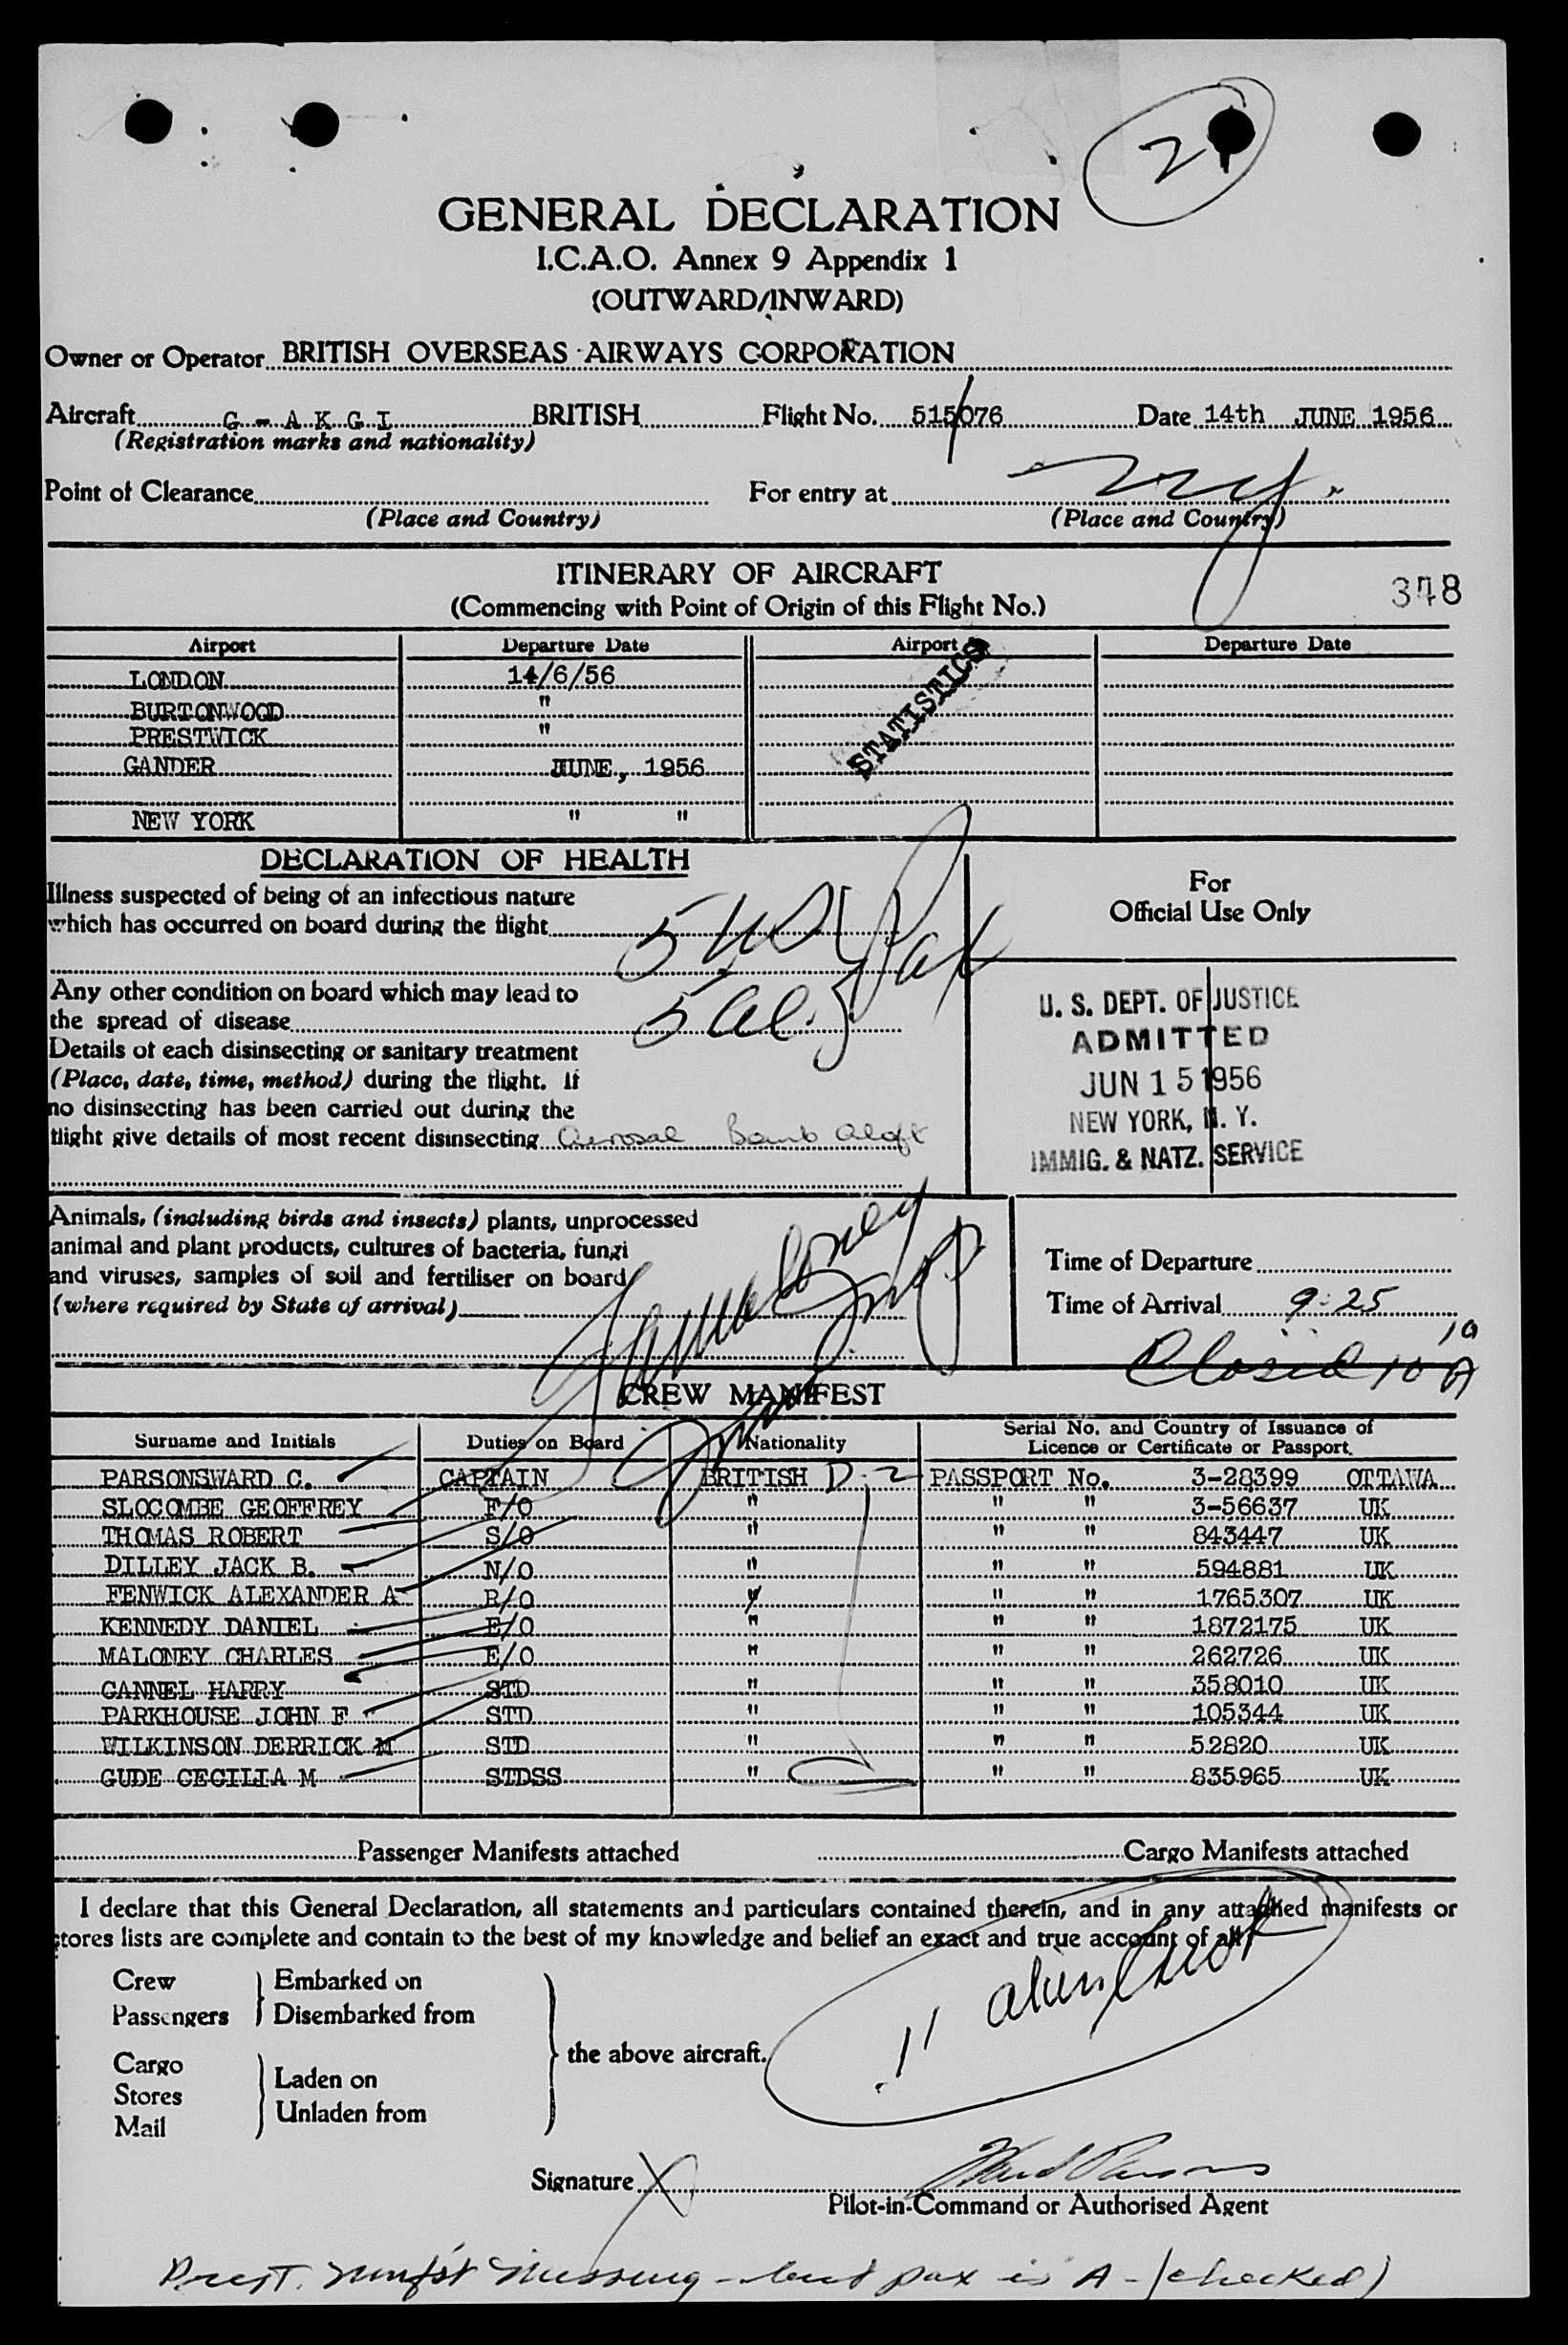 2
GENERAL DECLARATION
I.C.A.O. Annex 9 Appendix 1
(OUTWARD/INWARD)
Owner or Operator BRITISH OVERSEAS AIRWAYS CORPORATION
Aircraft G - A K G I BRITISH Flight No. 515/076 Date 14th JUNE 1956
(Registration marks and nationality)
Point of Clearance For entry at
(Place and Country) (Place and Country)
ITINERARY OF AIRCRAFT
(Commencing with Point of Origin of this Flight No.)
348
Airport Departure Date Airport Departure Date
LONDON 14/6/56
BURTONWOOD "
PRESTWICK "
GANDER JUNE, 1956
NEW YORK " "
STATISTICS
DECLARATION OF HEALTH
Illness suspected of being of an infectious nature
which has occurred on board during the flight
5 US } Pax
Any other condition on board which may lead to
the spread of disease
5 al.
Details of each disinsecting or sanitary treatment
(Place, date, time, method) during the flight. If
no disinsecting has been carried out during the
flight give details of most recent disinsecting Aerosal Bomb Aloft
For
Official Use Only
U. S. DEPT. OF JUSTICE
ADMITTED
JUN 15 1956
NEW YORK, N. Y.
IMMIG. & NATZ. SERVICE
Animals, (including birds and insects) plants, unprocessed
animal and plant products, cultures of bacteria, fungi
and viruses, samples of soil and fertiliser on board
(where required by State of arrival)
Time of Departure
Time of Arrival 9:25
Closed 10 10 A
CREW MANIFEST
Surname and Initials Duties on Board Nationality Serial No. and Country of Issuance of
Licence or Certificate or Passport.
PARSONSWARD C. CAPTAIN BRITISH D-2 PASSPORT No. 3-28399 OTTAWA
SLOCOMBE GEOFFREY F/O " " " 3-56637 UK
THOMAS ROBERT S/O " " " 843447 UK
DILLEY JACK B. N/O " " " 594881 UK
FENWICK ALEXANDER A R/O " " " 1765307 UK
KENNEDY DANIEL E/O " " " 1872175 UK
MALONEY CHARLES E/O " " " 262726 UK
CANNEL HARRY STD " " " 358010 UK
PARKHOUSE JOHN F STD " " " 105344 UK
WILKINSON DERRICK M STD " " " 52820 UK
GUDE CECILIA M STDSS " " " 835965 UK
Passenger Manifests attached Cargo Manifests attached
I declare that this General Declaration, all statements and particulars contained therein, and in any attached manifests or
stores lists are complete and contain to the best of my knowledge and belief an exact and true account of all
Crew } Embarked on
Passengers } Disembarked from
the above aircraft.
Cargo
Stores } Laden on
Mail } Unladen from
11 alien
Signature X Ward Parsons
Pilot-in-Command or Authorised Agent
Prest. mnfst missing - but pax is A - (checked)